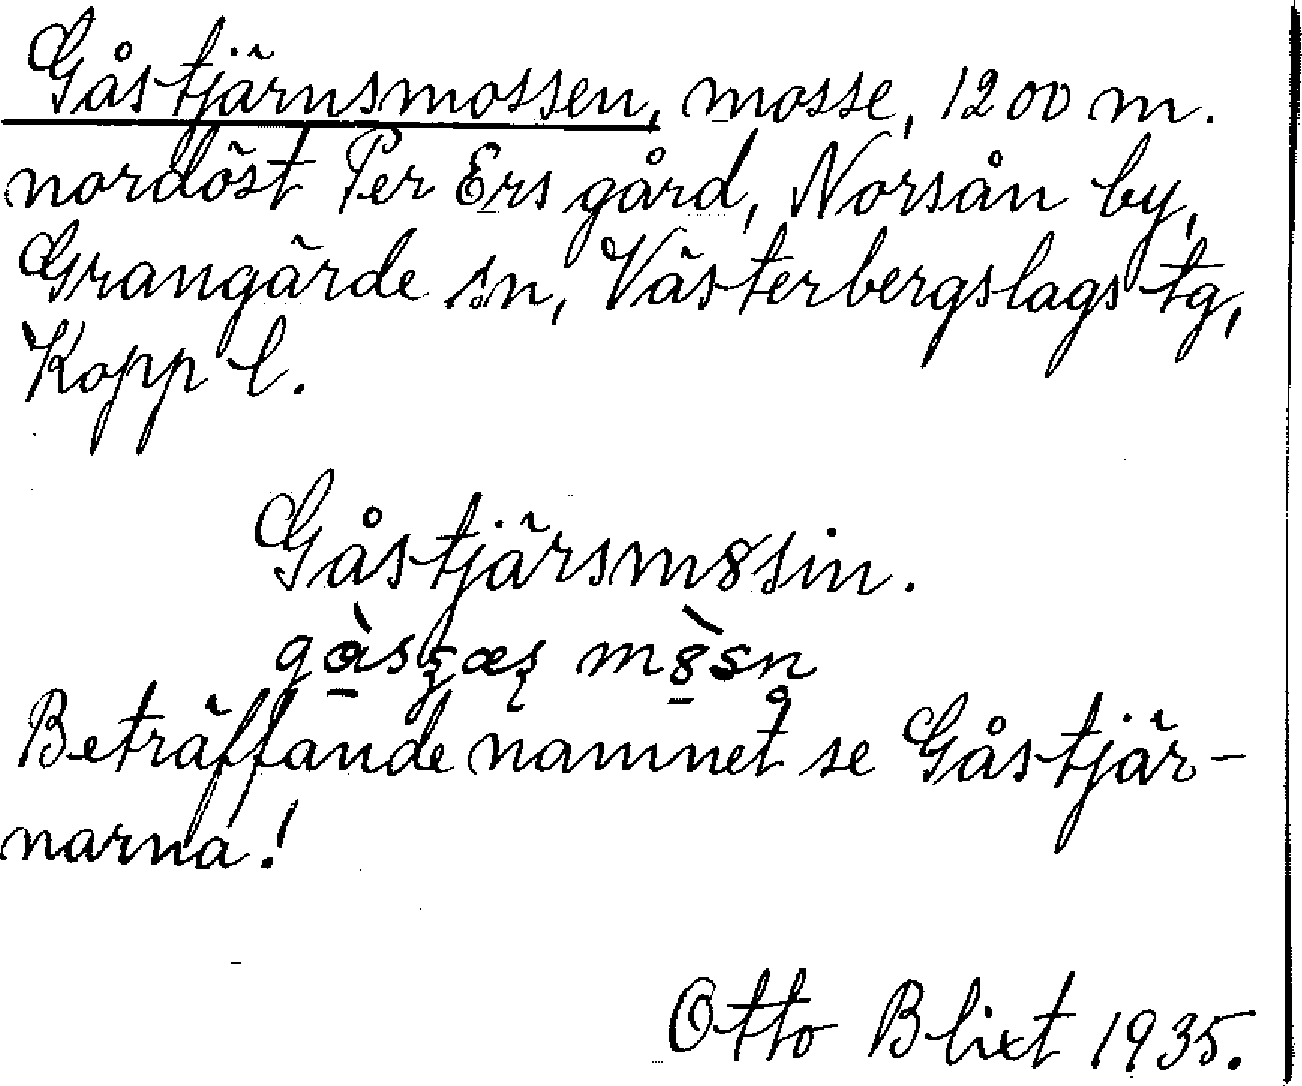 Gåstjärnsmossen, mosse, 1200 m.
nordöst Per Ers gård, Norsån by,
Grangärde sn, Västerbergslags tg,
Kopp l.
Gåstjärsm8sin.
m8̀sn
Beträffande namnet se Gåstjär-
narna!
Otto Blixt 1935.